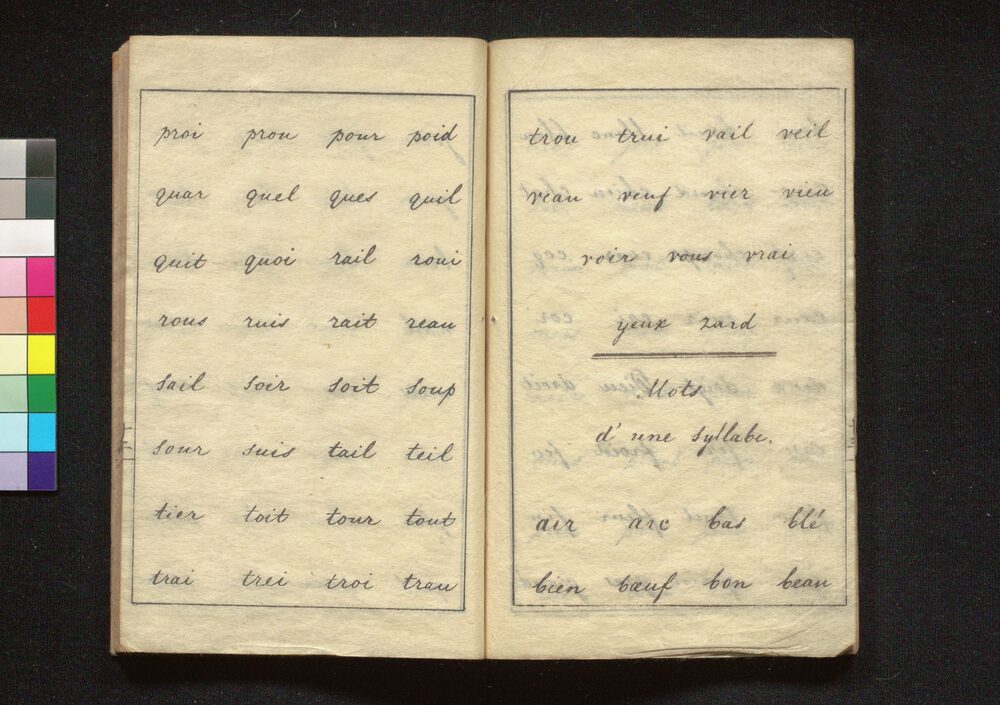 proi prou pour poid
quar quel ques quil
quit quoi rail roui
rous ruis rait reau
sail soir soit soup
sour suis tail teil
tier toit tour tout
trai trei troi trau
trou trui vail veil
veau veuf vier vieu
voir vous vrai
yeux zard
Mots
d'une syllabe.
air arc bas blé
bien bœuf bon beau